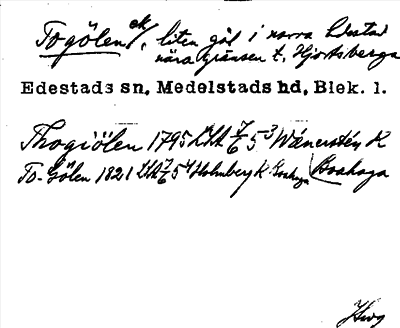 Togölen ek, liten göl i norra Edestad
nära gränsen t. Hjortsberga
Edestads sn. Medelstads hd. Blek. l.
Thogiölen 1795 LtA 7/6 5³ Wånerstén K
To-Gölen 1821 LtA 7/6 5⁴ Holmberg K Boahaga